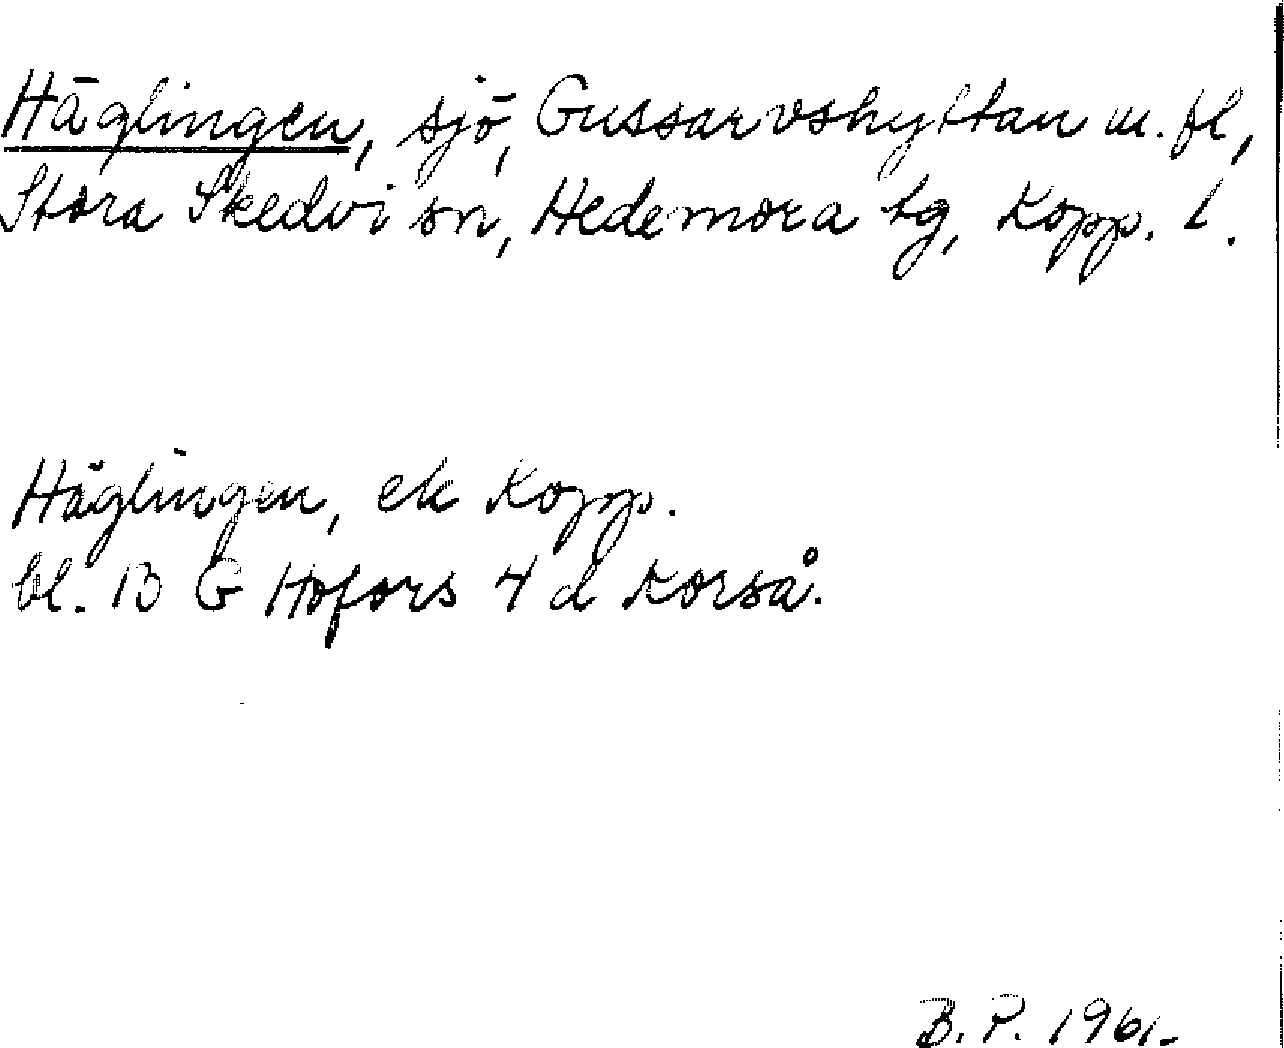 Häglingen, sjö, Gussarvshyttan m. fl,
Stora Skedvi sn, Hedemora tg, Kopp. l.
Häglingen, ek Kopp.
bl. 13 G Hofors 4 d Korså.
B. P. 1961.